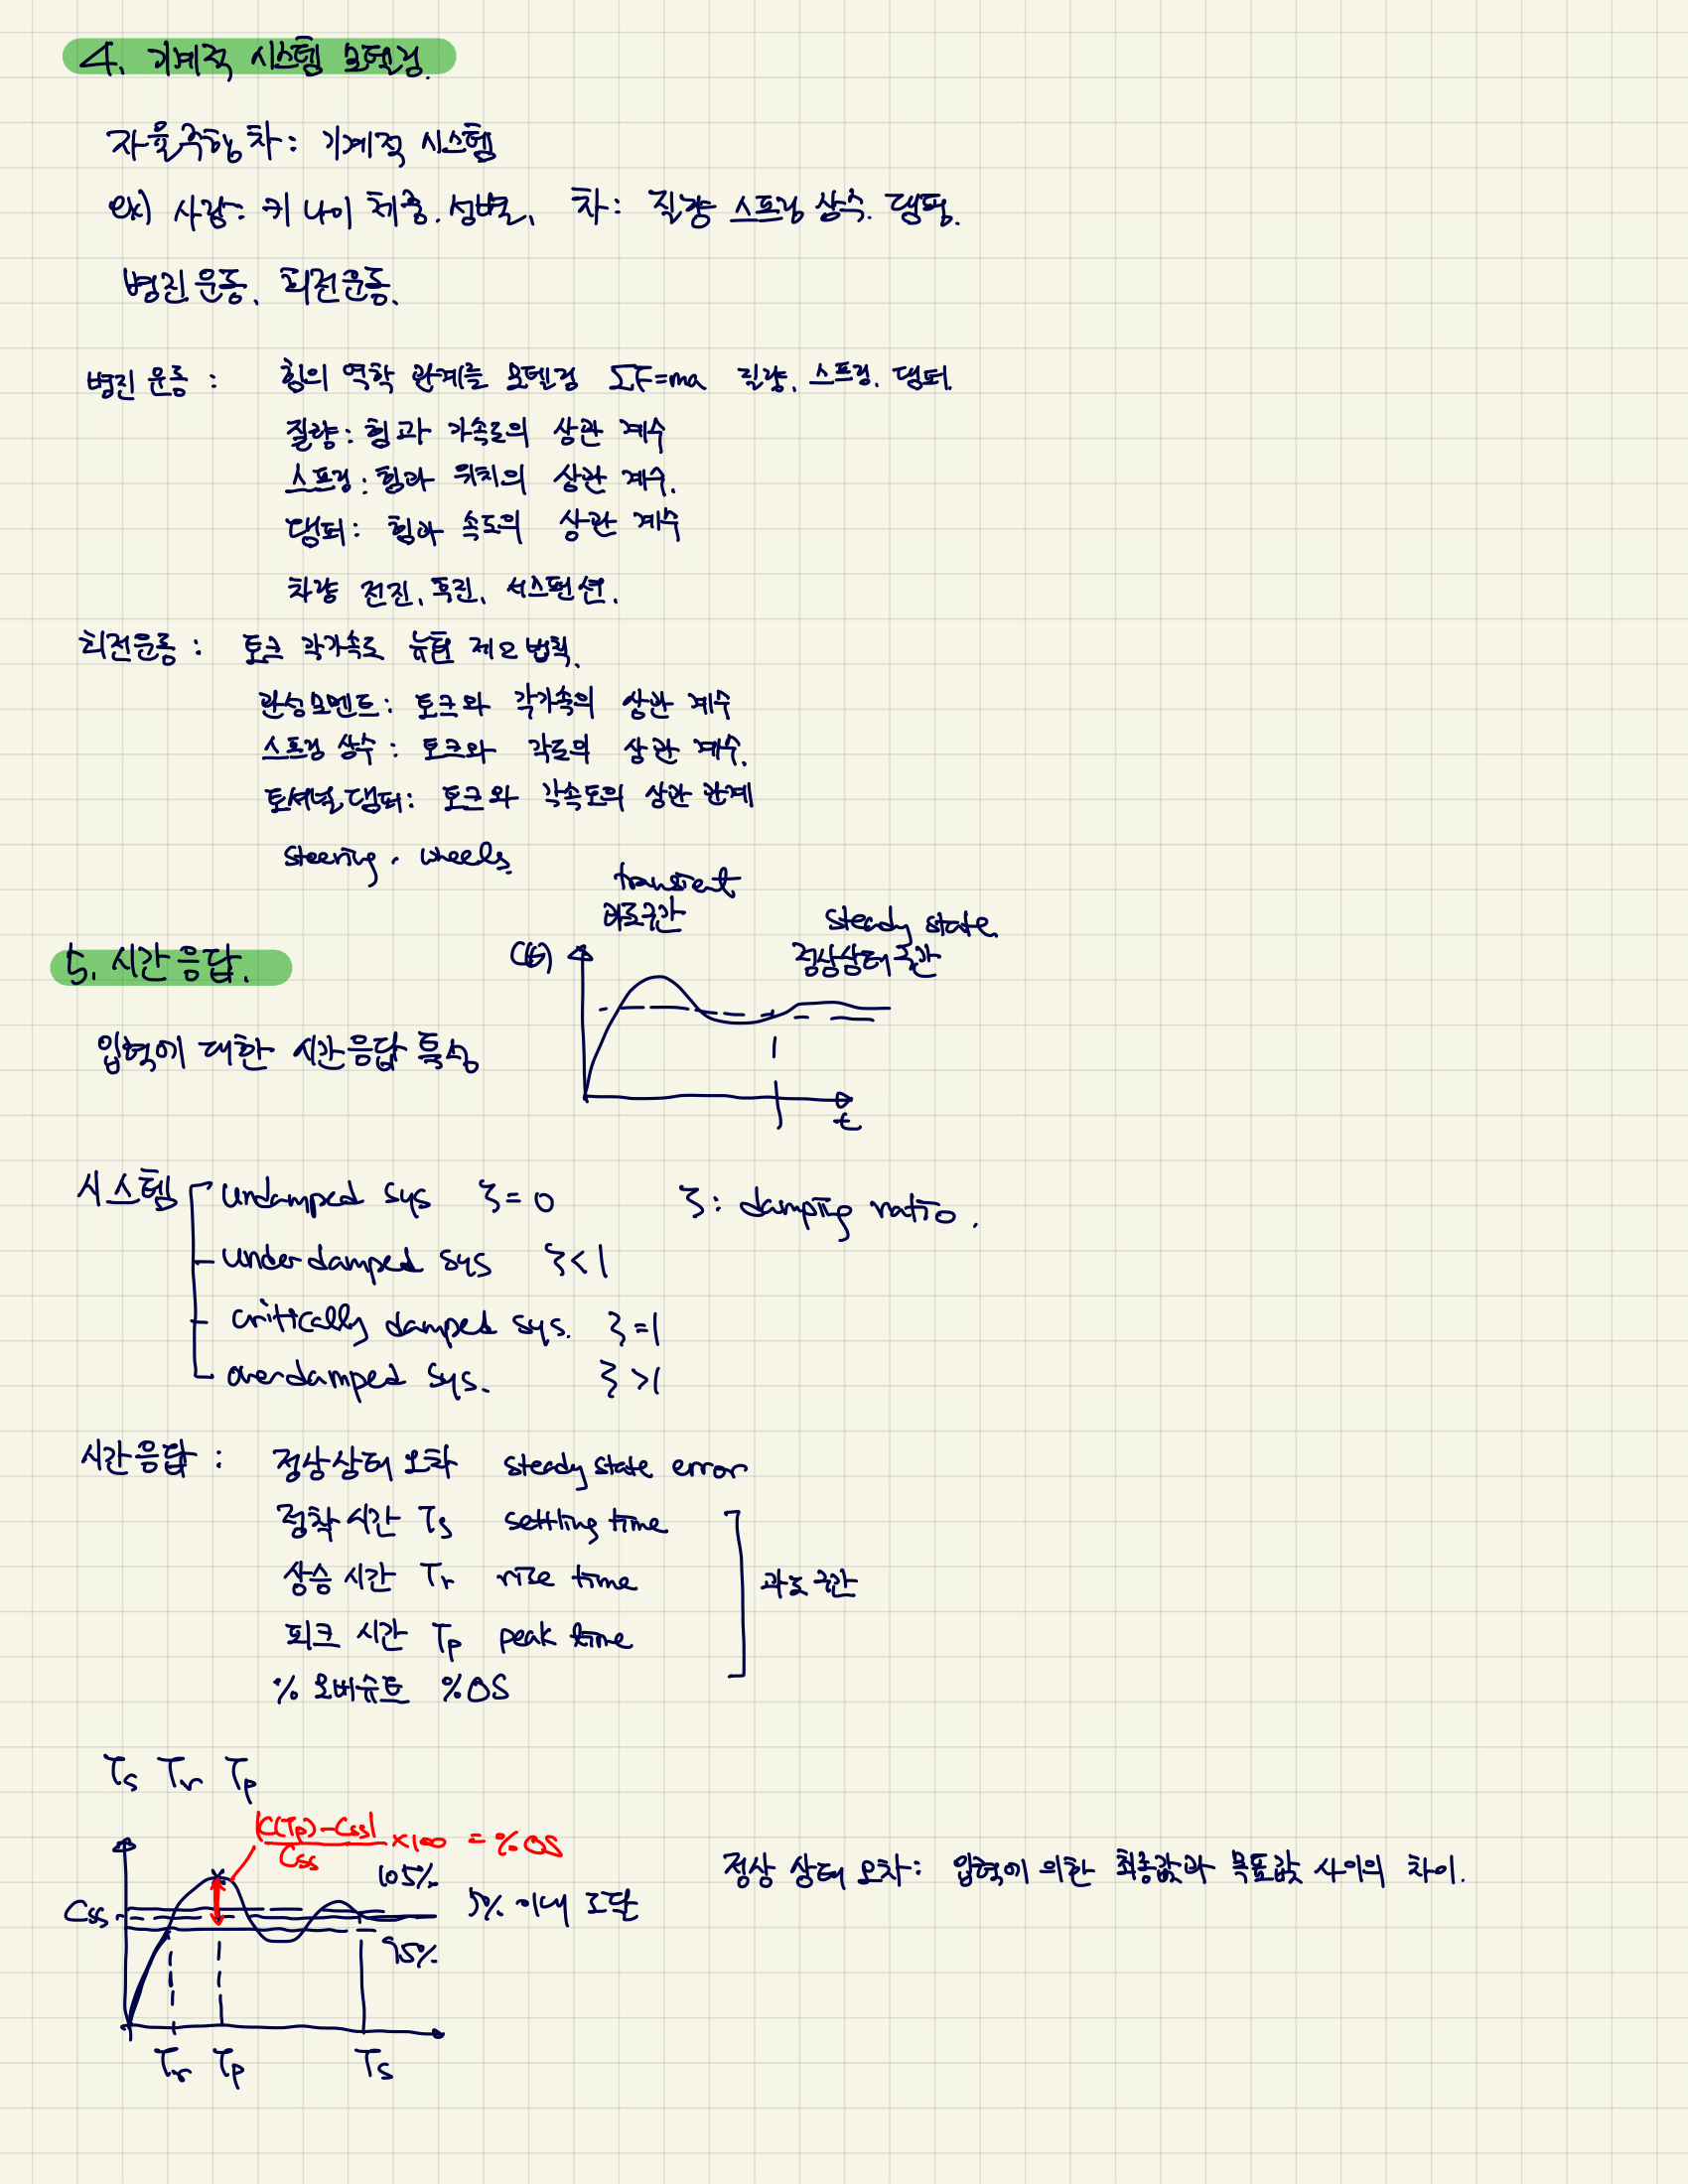 4. 기계적 시스템 모델링.
자율주행 차 : 기계적 시스템
ex) 사람: 키 나이 체중. 성별, 차 : 질량 스프링 상수. 댐핑.
병진 운동, 회전 운동.
병진 운동 : 힘의 역학 관계를 모델링 ΣF=ma 질량, 스프링, 댐퍼.
질량 : 힘과 가속도의 상관 계수
스프링 : 힘과 위치의 상관 계수.
댐퍼 : 힘과 속도의 상관 계수
차량 전진, 후진, 서스펜션.
회전운동 : 토크 각가속도 뉴턴 제2법칙.
관성모멘트 : 토크와 각가속의 상관 계수
스프링 상수 : 토크와 각도의 상관 계수.
토셔널 댐퍼 : 토크와 각속도의 상관 관계
steering. wheels.
transient
과도구간
steady state
정상상태 구간
5. 시간 응답.
C(t)
입력에 대한 시간응답 특성
t
시스템 undamped sys ζ = 0 ζ : damping ratio.
underdamped sys ζ < 1
critically damped sys. ζ = 1
overdamped sys. ζ > 1
시간응답 : 정상상태 오차 steady state error
정착 시간 Ts settling time
상승 시간 Tr rise time
과도 구간
피크 시간 Tp peak time
% 오버슈트 %OS
Ts Tr Tp
|C(Tp) - Css| / Css × 100 = %OS
105%
정상 상태 오차 : 입력에 의한 최종값과 목표값 사이의 차이.
Css
5% 이내 도달
95%
Tr Tp Ts